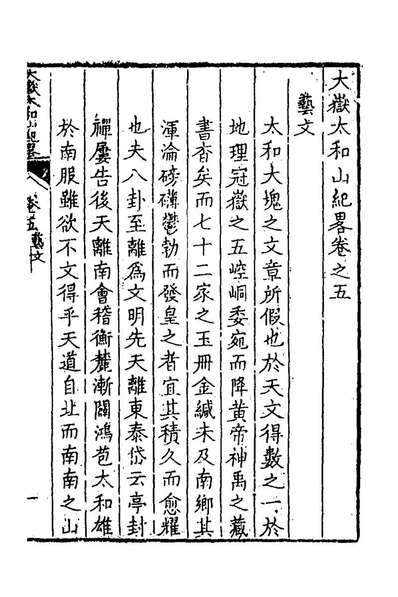 大嶽太和山紀畧卷之五
藝文
太和大塊之文章所假也於天文得數之一於
地理冠嶽之五崆峒委宛而降黃帝神禹之藏
書杳矣而七十二家之玉冊金緘未及南鄉其
渾淪磅礴鬱勃而發皇之者宜其積久而愈耀
也夫八卦至離為文明先天離東泰岱云亭封
禪屢告後天離南會稽衡麓漸闢鴻苞太和雄
於南服雖欲不文得乎天道自北而南南之山
大嶽太和山紀畧
卷五藝文
一